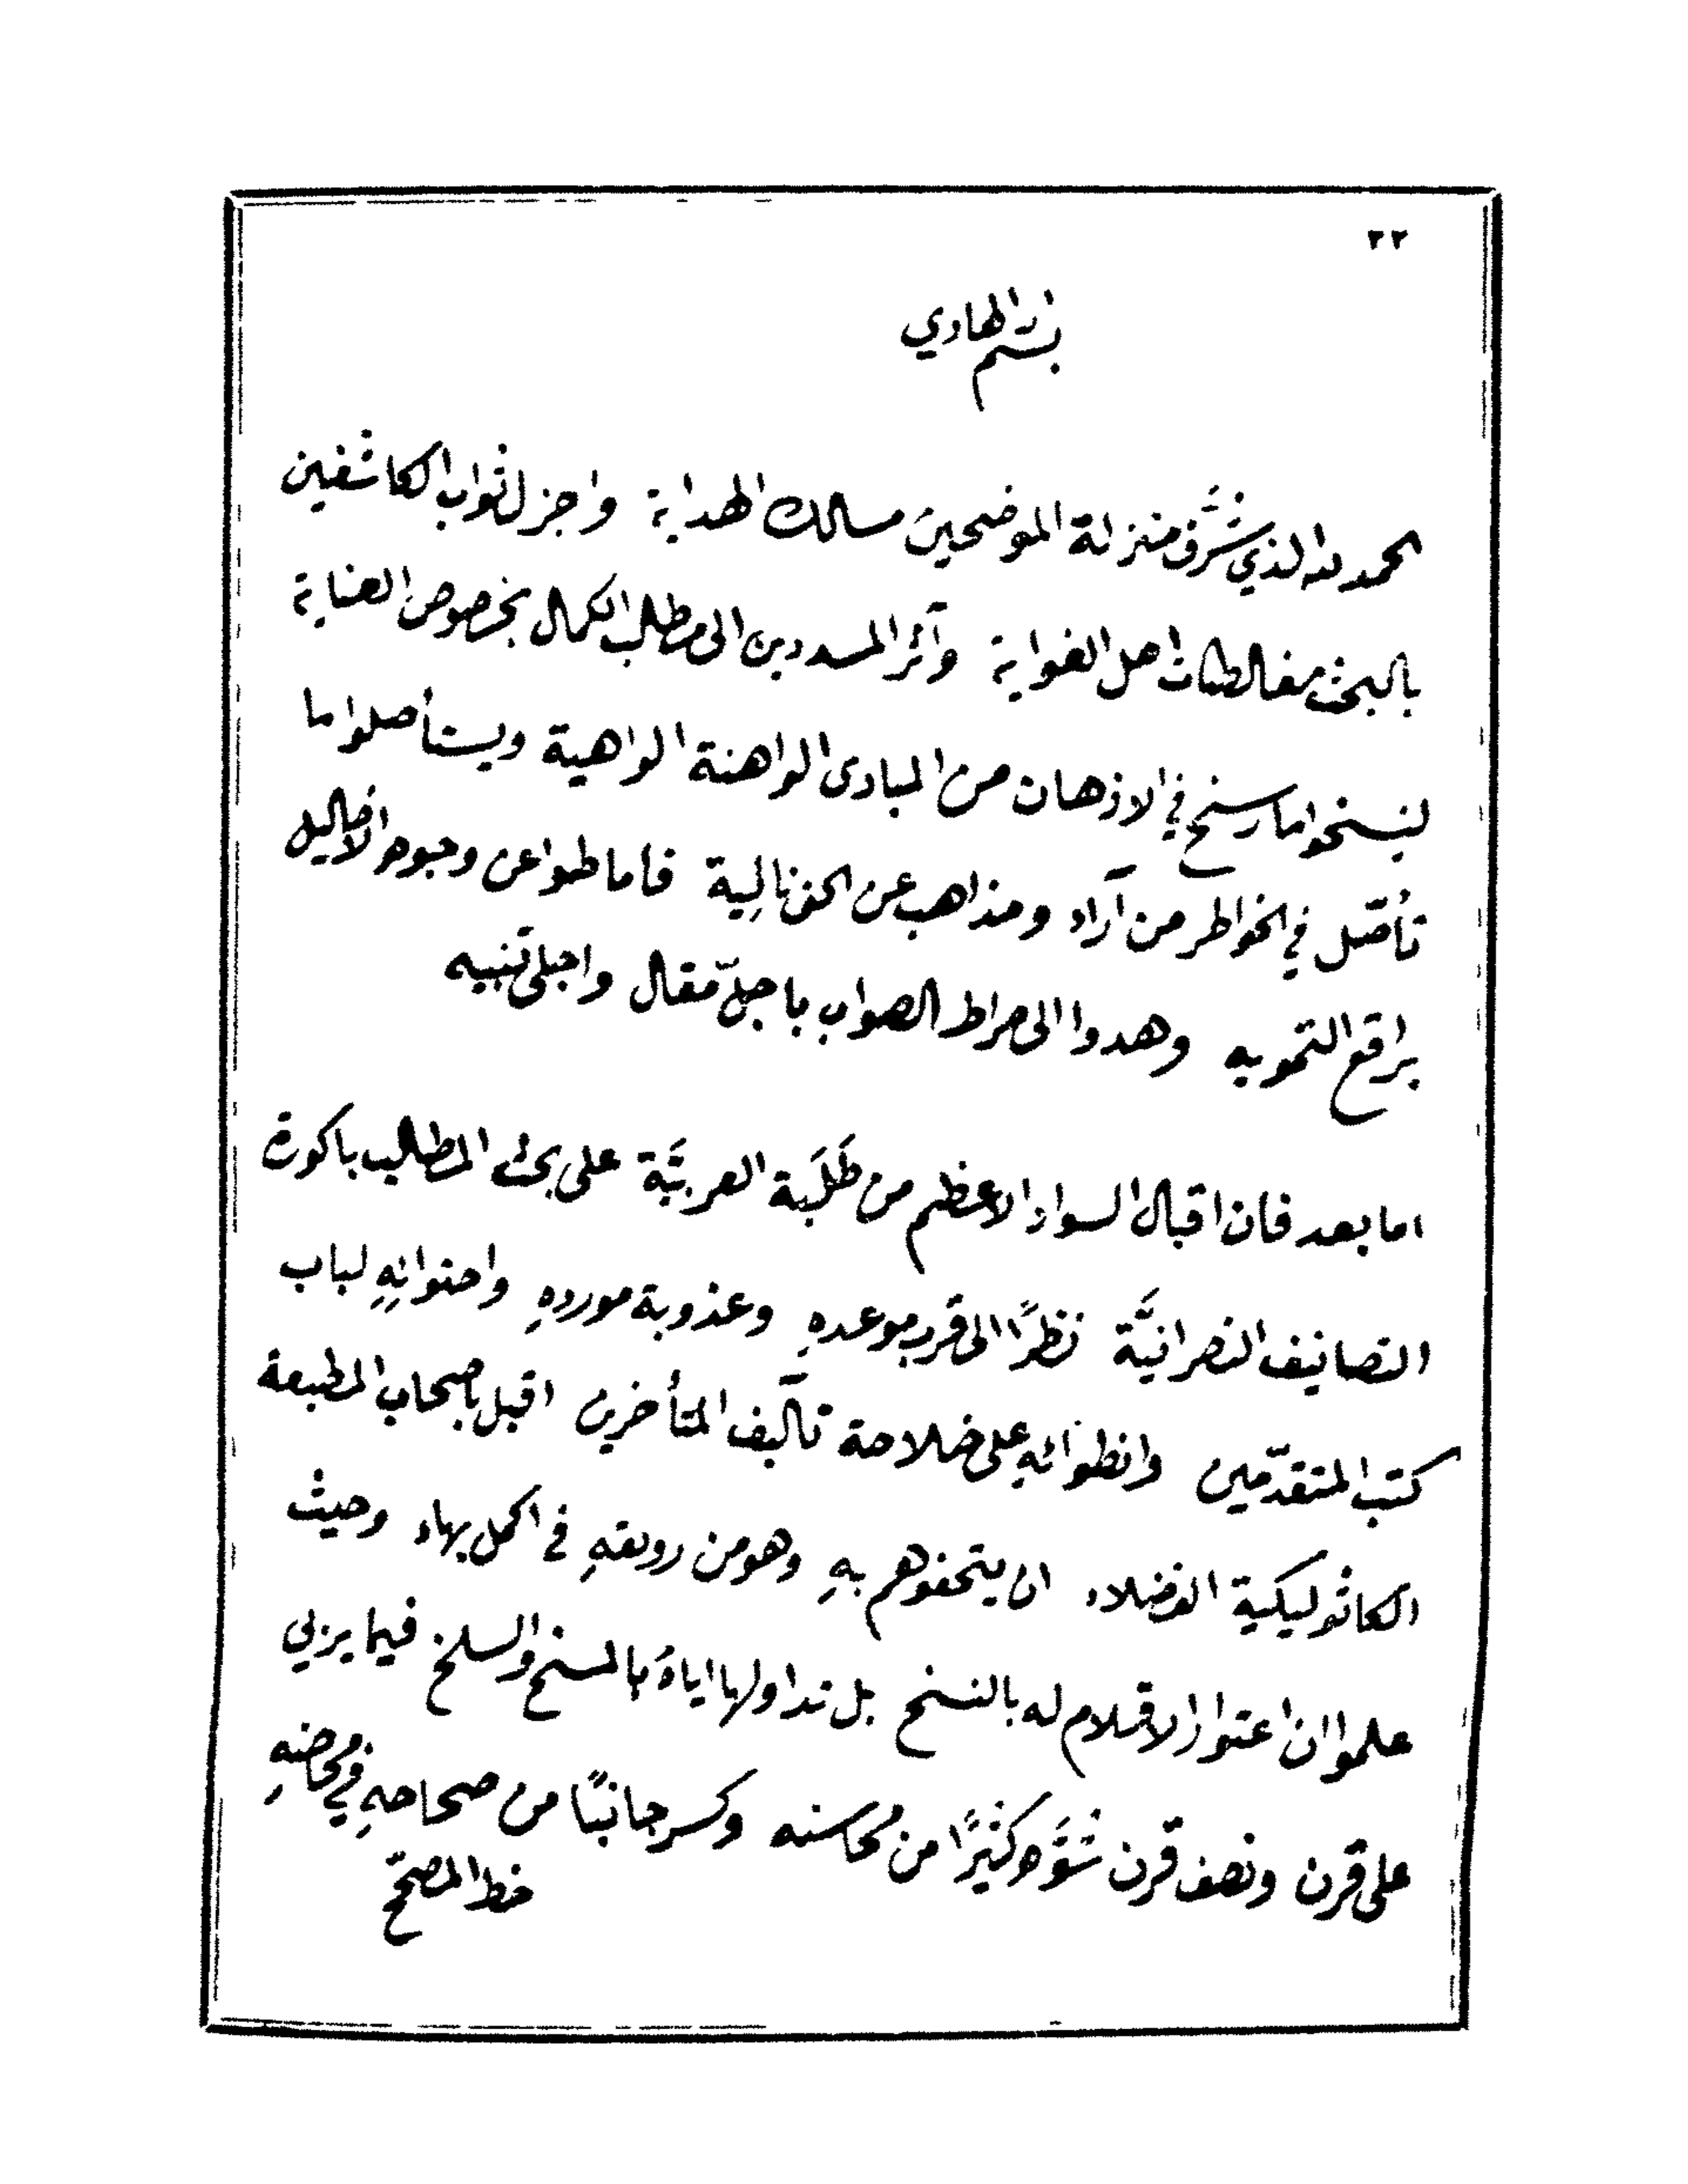 ٢٢
بسم الله الهادي
الحمد لله الذي شَرَّف منزلة الموضحين مسالك الهداية واجزل ثواب الكاشفين
بالبحث مغالطات اهل الغواية وآثر المسددين الى مطالب الكمال بخصوص العناية
لينسخوا ما رسخ في الاذهان من المبادئ الواهنة الواهية ويستأصلوا ما
تأصّل في الخواطر من آراء ومذاهب عن الحق نائية فاماطوا عن وجوه الاضاليل
براقع التمويه وهدوا الى صراط الصواب باجلّ مقال واجلى تنبيه
اما بعد فان اقبال السواد الاعظم من طَلَبة العربيَّة على بحث المطالب باكورة
التصانيف النصرانيَّة نظرًا الى قرب موعدهِ وعذوبة موردهِ واحتوائِهِ لباب
كتب المتقدّمين وانطوائهِ على خلاصة تآليف المتأخرين اقبل باصحاب المطبعة
الكاثوليكية الفضلاء ان يتحفوهم بهِ وهو من رونقهِ في اكمل بهاء وحيث
علموا ان اعتوار الاقلام له بالنسخ بل تداولها اياهُ بالمسخ والسلخ فيما يربي
على قرن ونصف قرن شَوَّه كثيرًا من محاسنه وكسر جانبًا من صحاحهِ في محاضنهِ
خط المصحّح